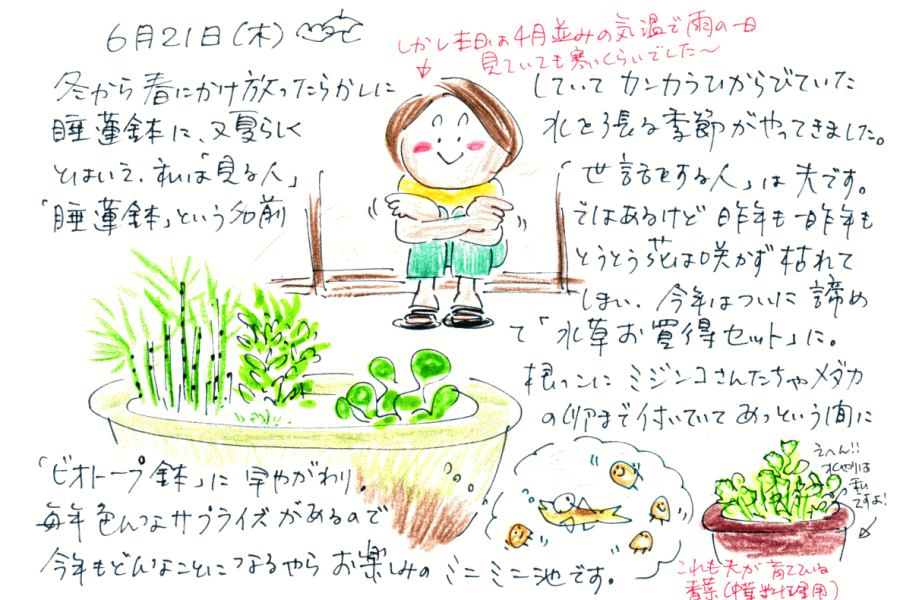 6月21日(木)
しかし本日は4月並みの気温で雨の一日
見ていても寒いくらいでした〜
冬から春にかけ放ったらかしに
していてカンカラひからびていた
睡蓮鉢に、又夏らしく
水を張る季節がやってきました。
とはいえ、私は「見る人」
「世話をする人」は夫です。
「睡蓮鉢」という名前
ではあるけど昨年も一昨年も
とうとう花は咲かず枯れて
しまい、今年はついに諦め
て「水草お買得セット」に。
根っこにミジンコさんたちやメダカ
の卵まで付いていてあっという間に
「ビオトープ鉢」に早やがわり。
毎年色んなサプライズがあるので
今年もどんなことになるやらお楽しみの
ミニミニ池です。
えへん!!
水やりは
私
ですよ!
これも夫が育てている
香菜(中華料理用)